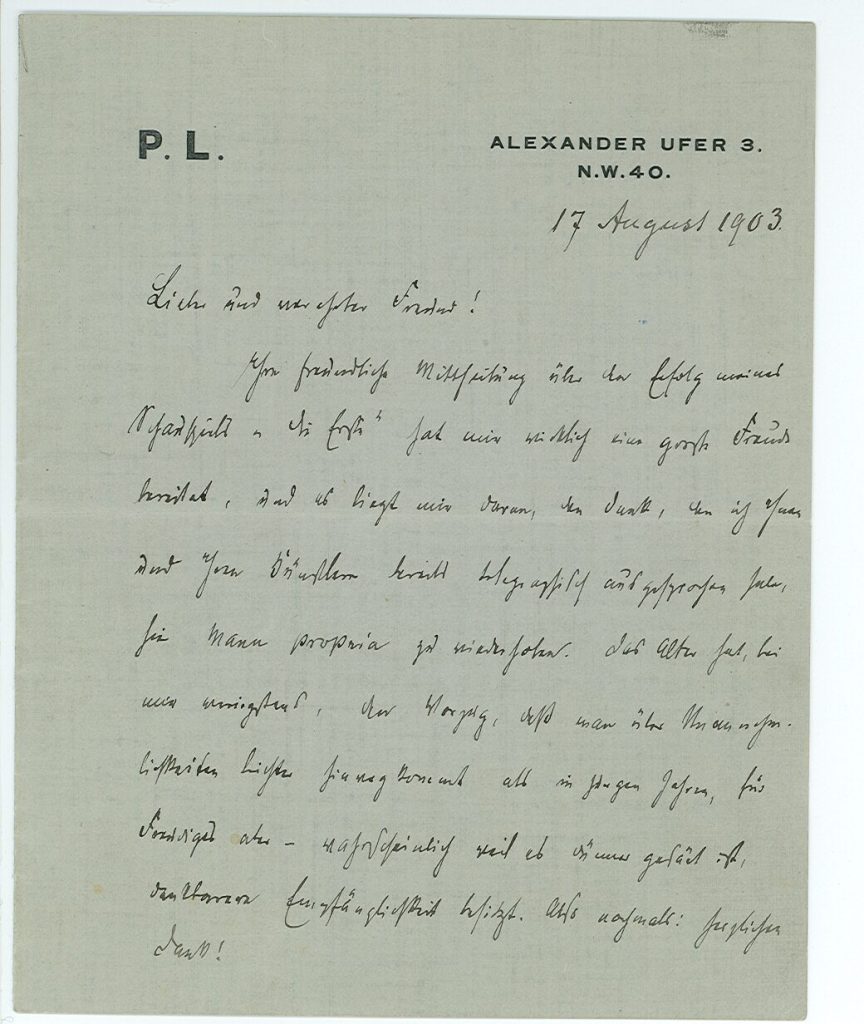 P. L.
ALEXANDER UFER 3.
N.W.40.
17 August 1903.
Lieber und verehrter Freund!
Ihre freundliche Mittheilung über den Erfolg meines
Schauspiels „die Erste" hat mir wirklich eine große Freude
bereitet, und es liegt mir daran, den Dank, den ich Ihnen
und Ihren Künstlern bereits telegraphisch ausgesprochen habe,
hie Manu propria zu wiederholen. Das Alter hat, bei
mir wenigstens, den Vorzug, daß man über Unannehm-
lichkeiten leichter hinwegkommt als in jungen Jahren, für
Freudiges aber – wahrscheinlich weil es dünner gesät ist,
dankbarere Empfänglichkeit besitzt. Also nochmals: herzlichen
Dank!